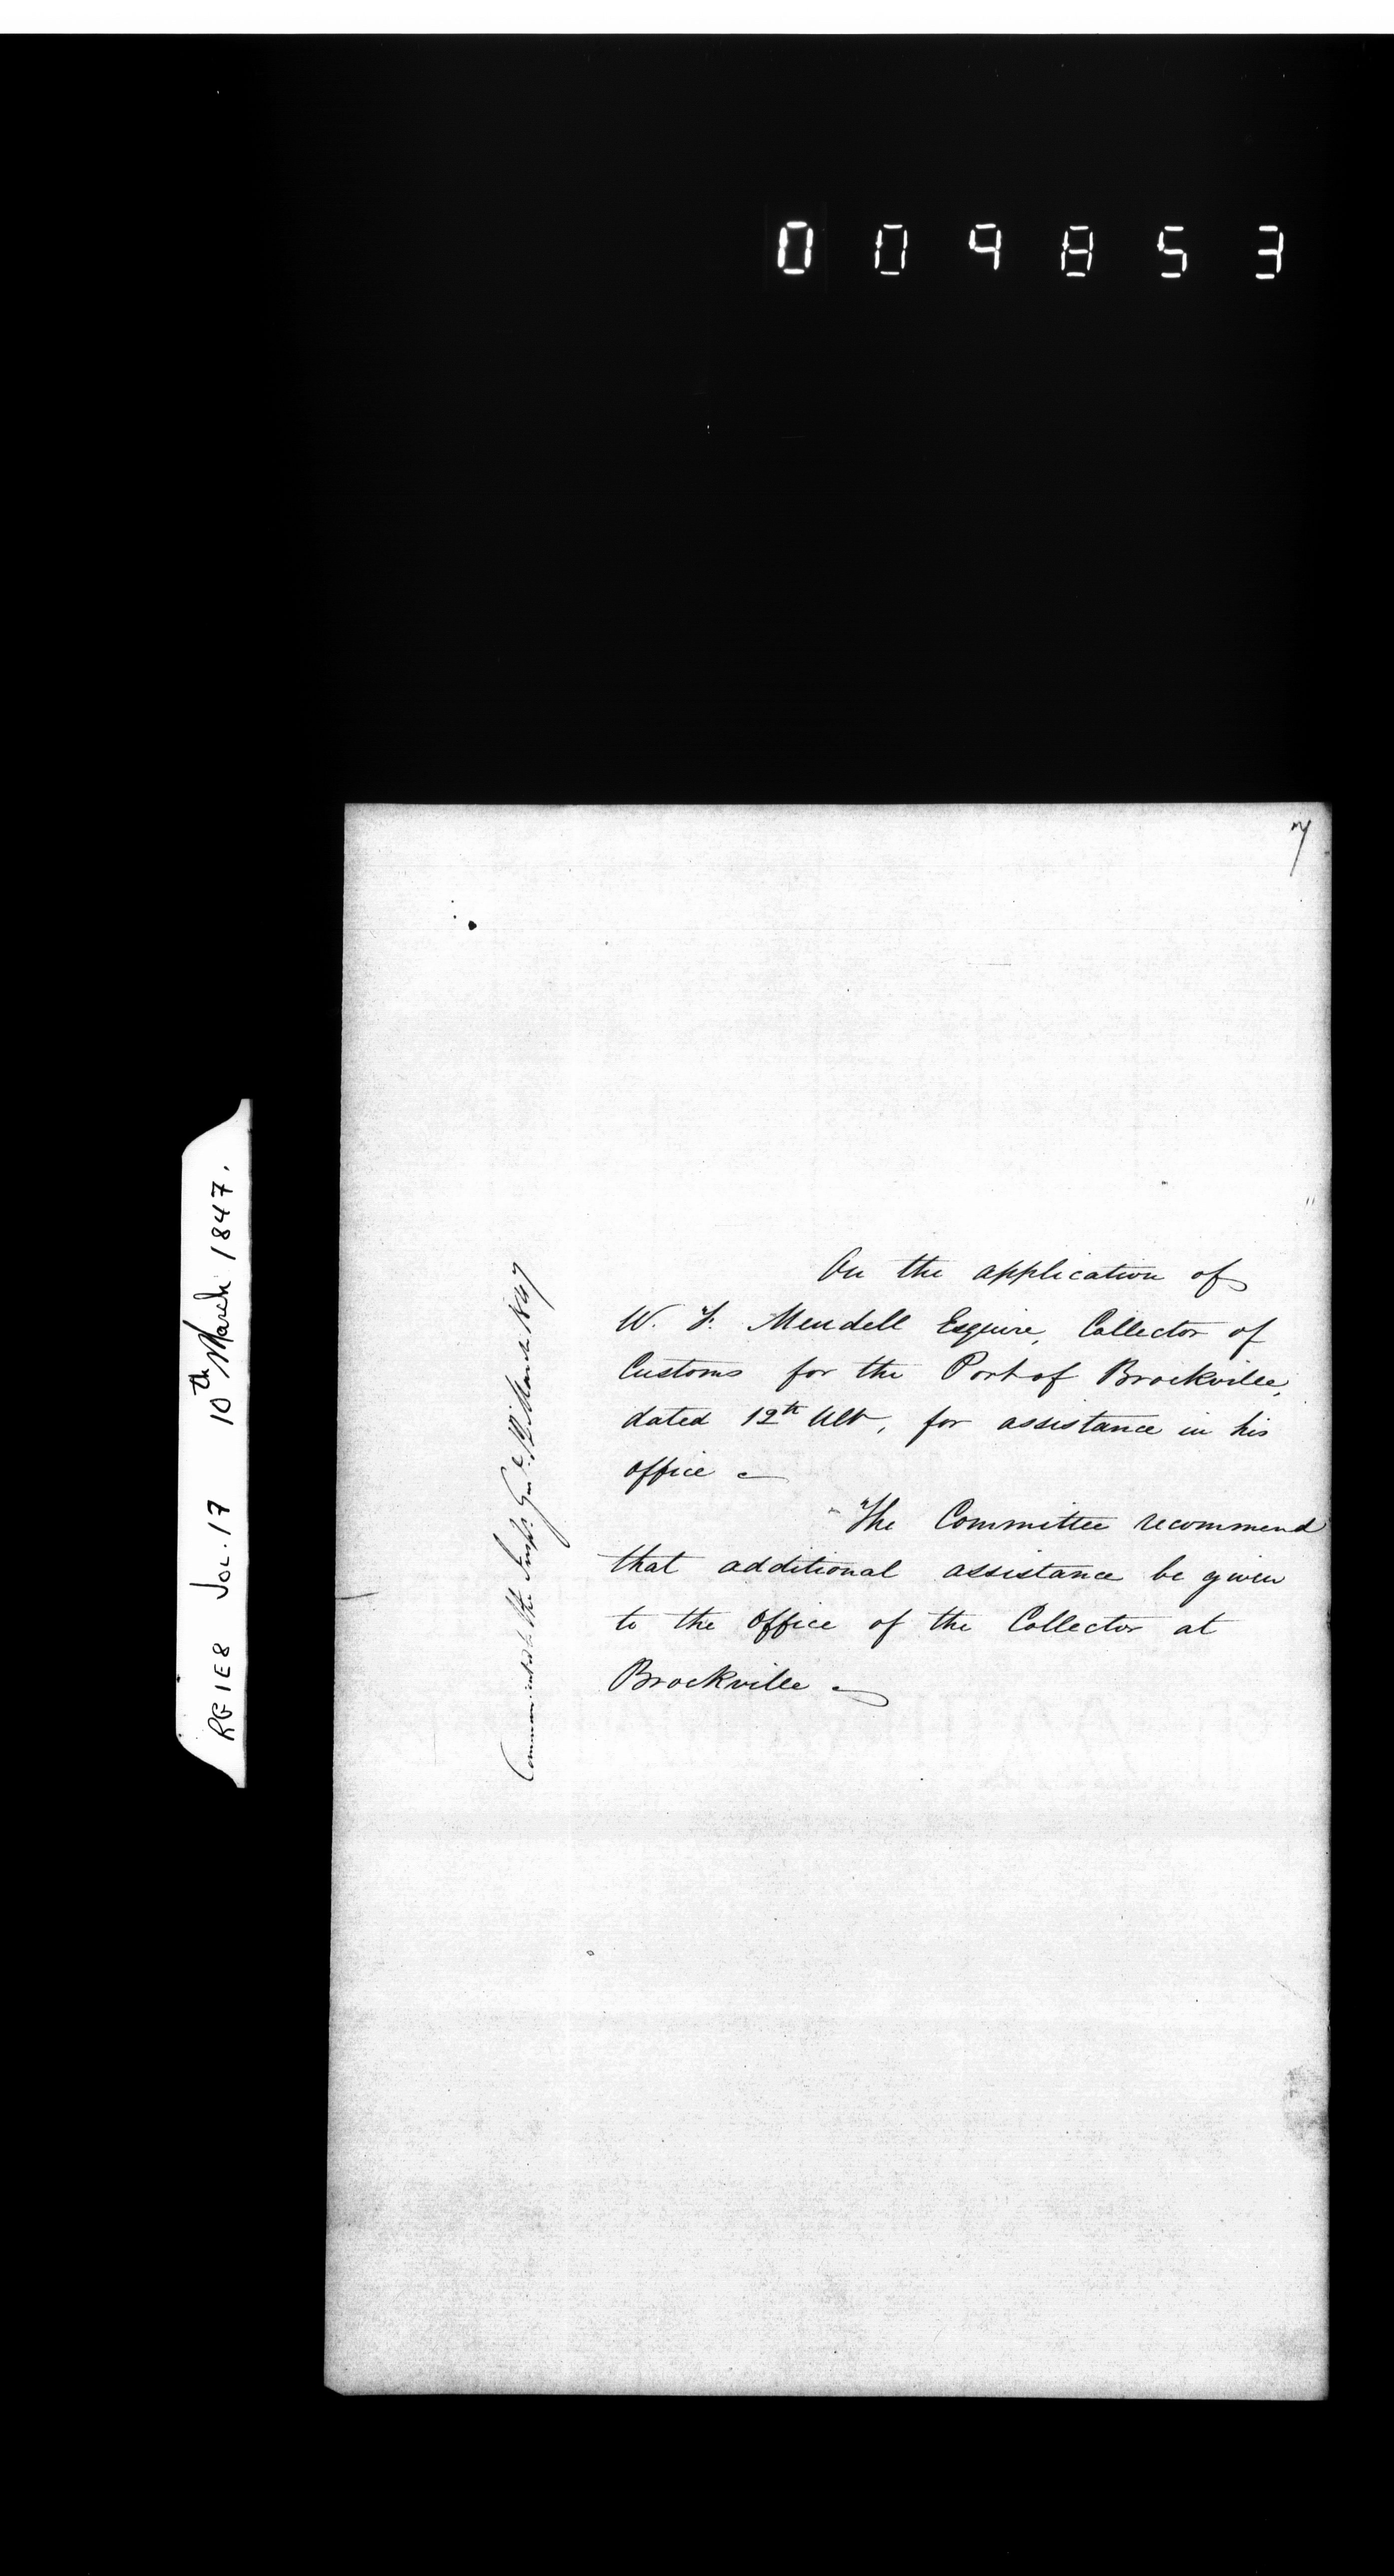 009853
7
On the application of
W. F. Mendell Esquire, Collector of
Customs for the Port of Brockville,
dated 12th Ult, for assistance in his
office
The Committee recommend
that additional assistance be given
to the Office of the Collector at
Brockville
Communicated to the Inspr Genl March 1847
RG1E8 Vol. 17 10th March 1847.